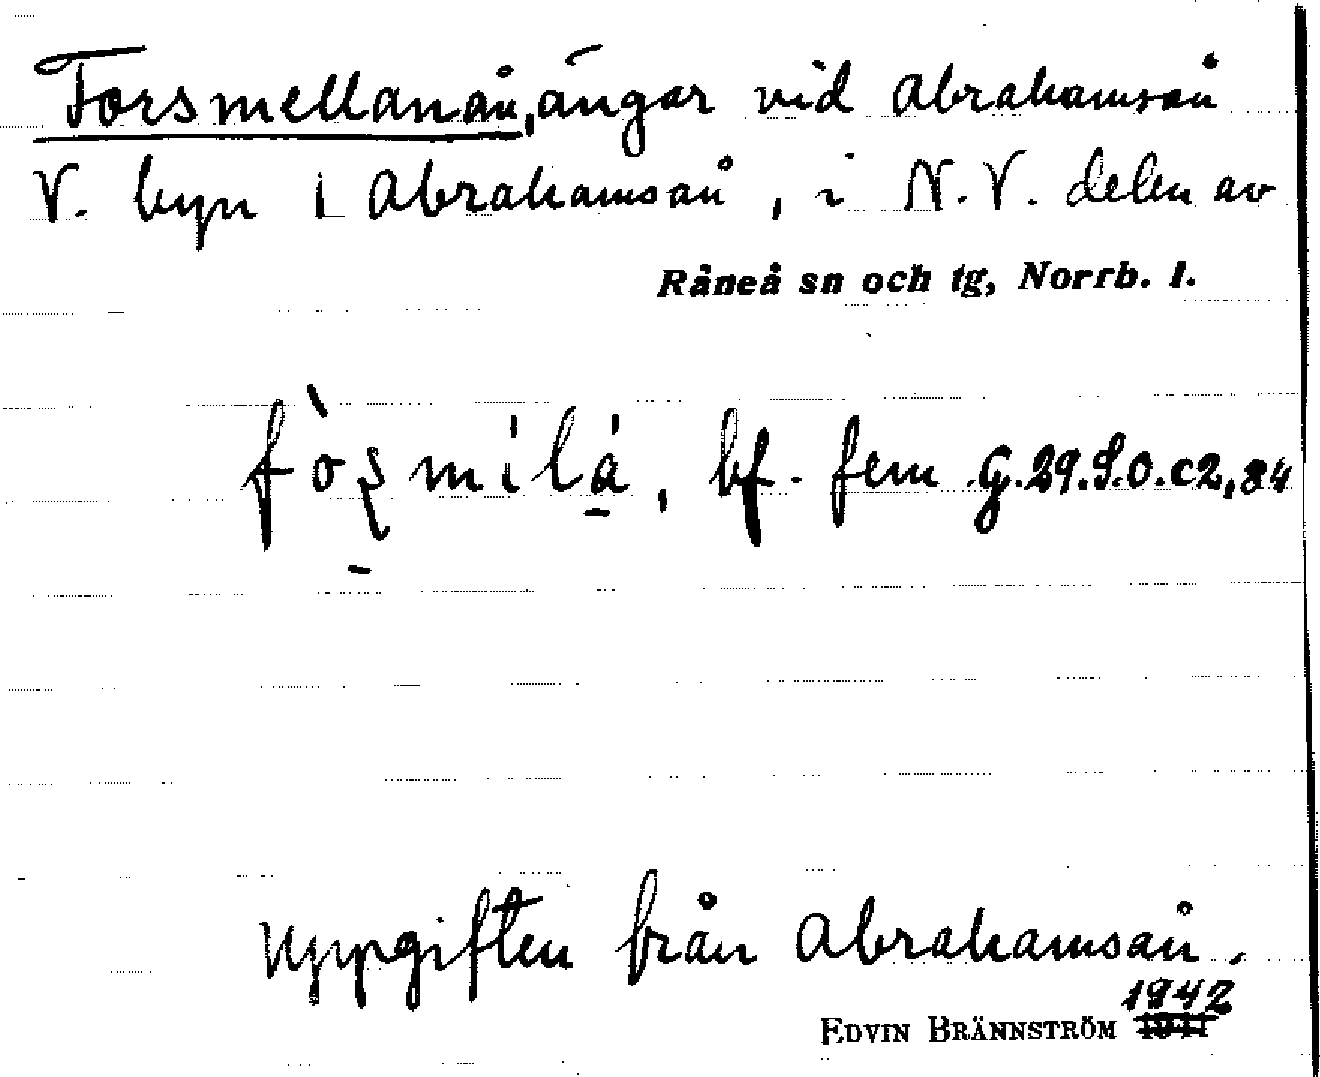 Forsmellanån, ängar vid Abrahamsån
V. byn i Abrahamsån, i N.V. delen av
Råneå sn och tg, Norrb. l.
bf. fem G.29.S.O.c2,84
Uppgiften från Abrahamsån.
1942
EDVIN BRÄNNSTRÖM 1941